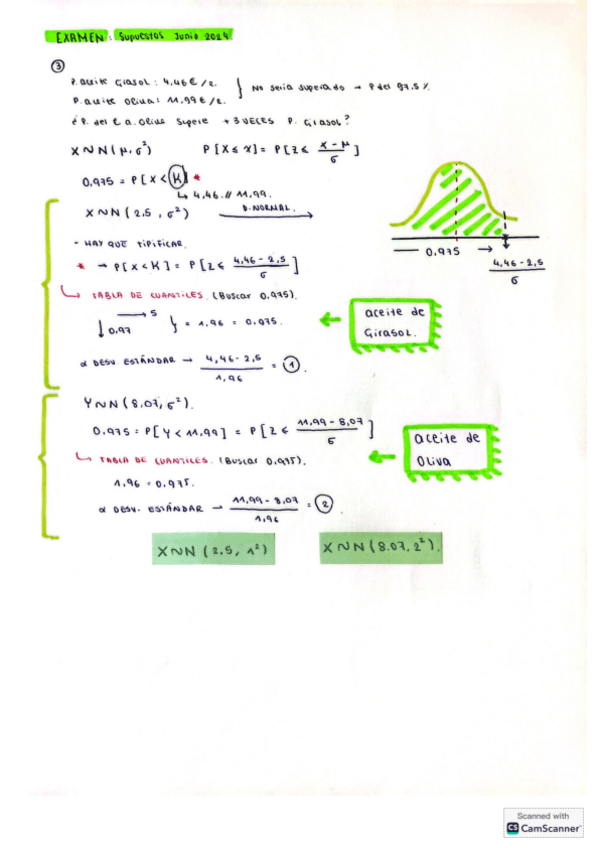 EXAMEN: Supuestos Junio 2024.
③
P. aceite Girasol: 4.46€/L.
P. aceite Oliva: 11,99€/L.
} No sería superado → P del 97.5%
¿P. del L a. Oliva supere +3 VECES P. Girasol?
X∼N(μ,σ²) P[X≤x] = P[Z≤ (x-μ)/σ]
0.975 = P[X<K] *
↳ 4,46 // 11,99.
X∼N(2.5, σ²) D. NORMAL. →
- HAY QUE TIPIFICAR.
* → P[X<K] = P[Z≤ (4,46-2,5)/σ]
↳ TABLA DE CUANTILES. (Buscar 0,975).
↓0.97 → 5 } = 1,96 = 0.975.
α DESV ESTÁNDAR → (4,46-2,5)/1,96 = ①.
0.975 →
(4,46-2,5)/σ
← aceite de
Girasol.
Y∼N(8.07, σ²).
0.975 = P[Y<11,99] = P[Z≤ (11,99-8,07)/σ]
↳ TABLA DE CUANTILES. (Buscar 0,975).
1,96 = 0.975.
α DESV. ESTÁNDAR → (11,99-8,07)/1,96 = ②.
← aceite de
Oliva
X∼N(2.5, 1²) X∼N(8.07, 2²).
Scanned with
CS CamScanner